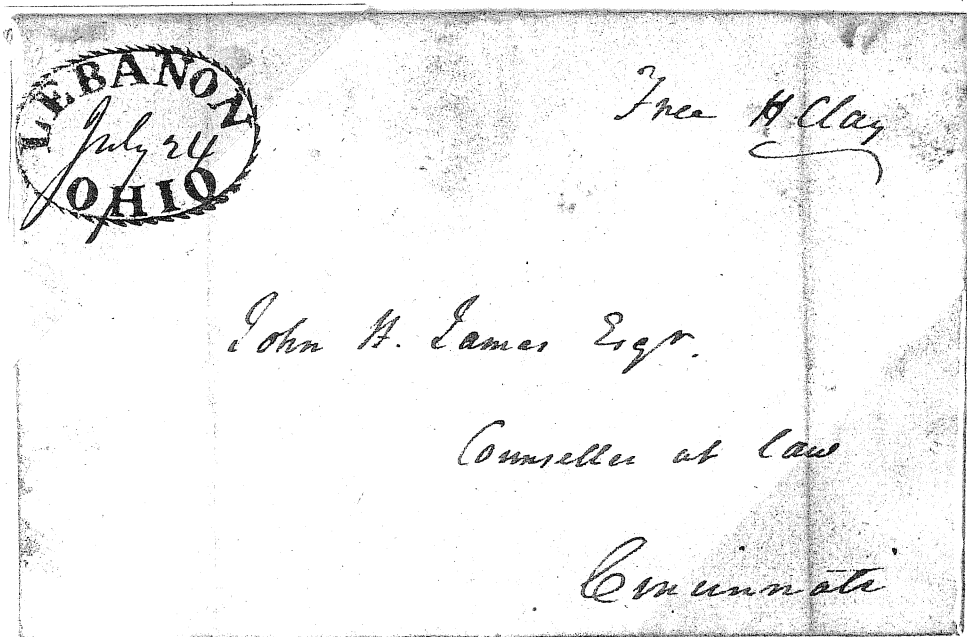 LEBANON
July 24
OHIO
Free H Clay
John H. James Esqr.
Counseller at law
Cincinnati